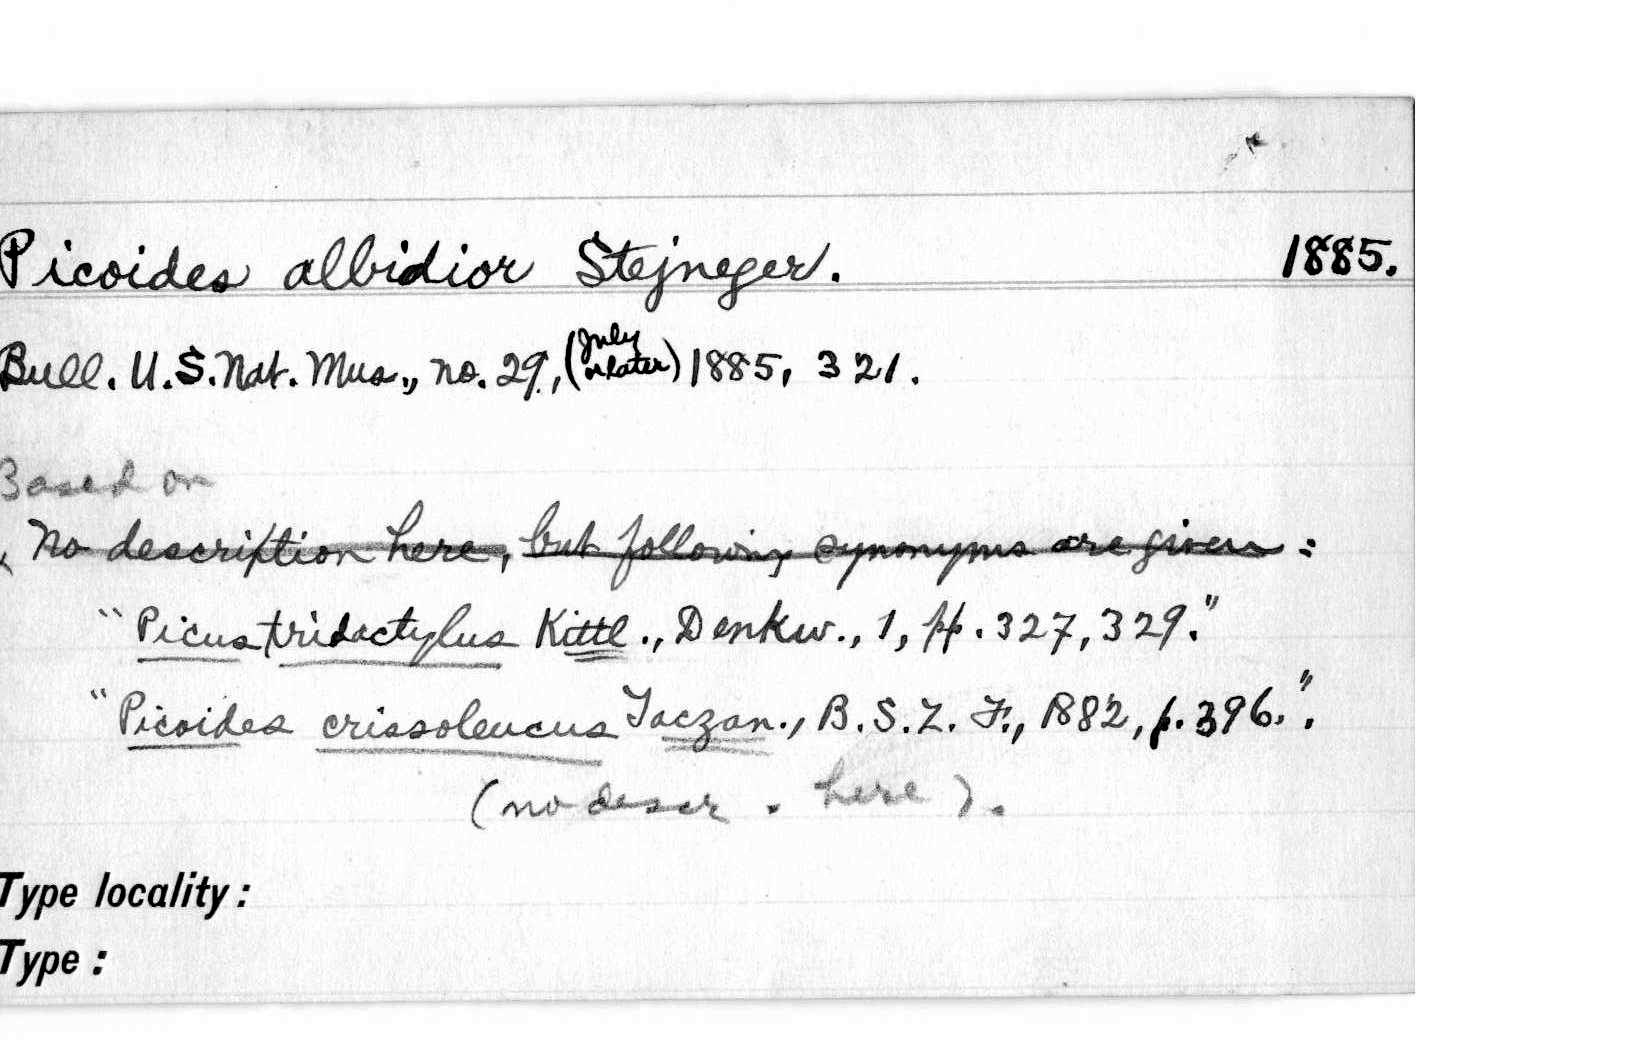 Picoides albidior Stejneger. 1885.
Bull. U.S. Nat. Mus., no. 29, (July or later) 1885, 321.
Based on
No description here, but following synonyms are given :
"Picus tridactylus Kittl., Denkw., 1, pp. 327, 329."
"Picoides crissoleucus Taczan., B.S.Z. F., 1882, p. 396.".
(no descr. here).
Type locality :
Type :